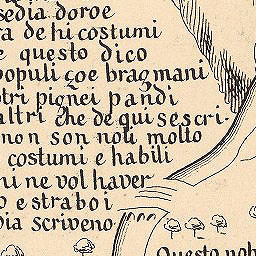 sedia doro e
ra de hi costumi
e questo dico
populi çoe bragmani
otri pignei pandi
altri che de qui sescri-
non son noti molto
costumi e habili
ni ne vol haver
o e strabo i
bia scriveno
Questo nob